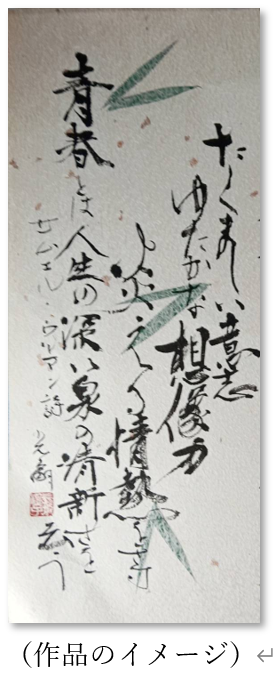 たくましい意志
ゆたかな想像力
炎える情熱をさす
青春とは人生の深い泉の清新さを
云う
サムエル・ウルマン詩
(作品のイメージ)